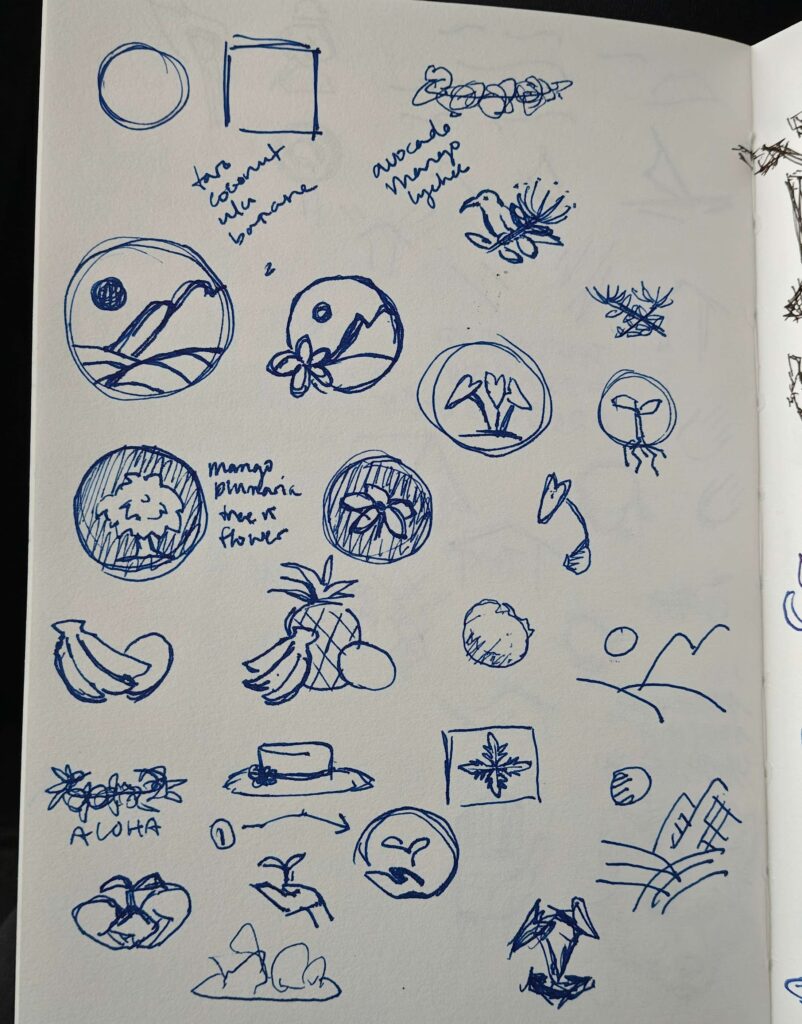 taro
coconut
ulu
banana
avocado
mango
lychee
mango
plumeria
tree vs
flower
ALOHA
1